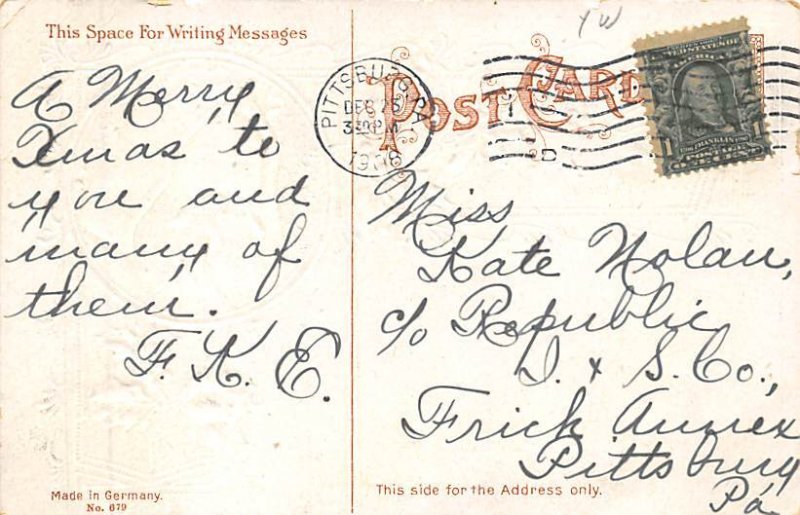 This Space For Writing Messages
A Merry
Xmas to
you and
many of
them.
F. K. E.
Made in Germany.
No. 679
YW
POST CARD
PITTSBURG, PA.
DEC 23
3 30 PM
1908
1
D
POSTAGE
1
Miss
Kate Nolan,
c/o Republic
I. & S. Co.,
Frick Annex
Pittsburg
Pa
This side for the Address only.